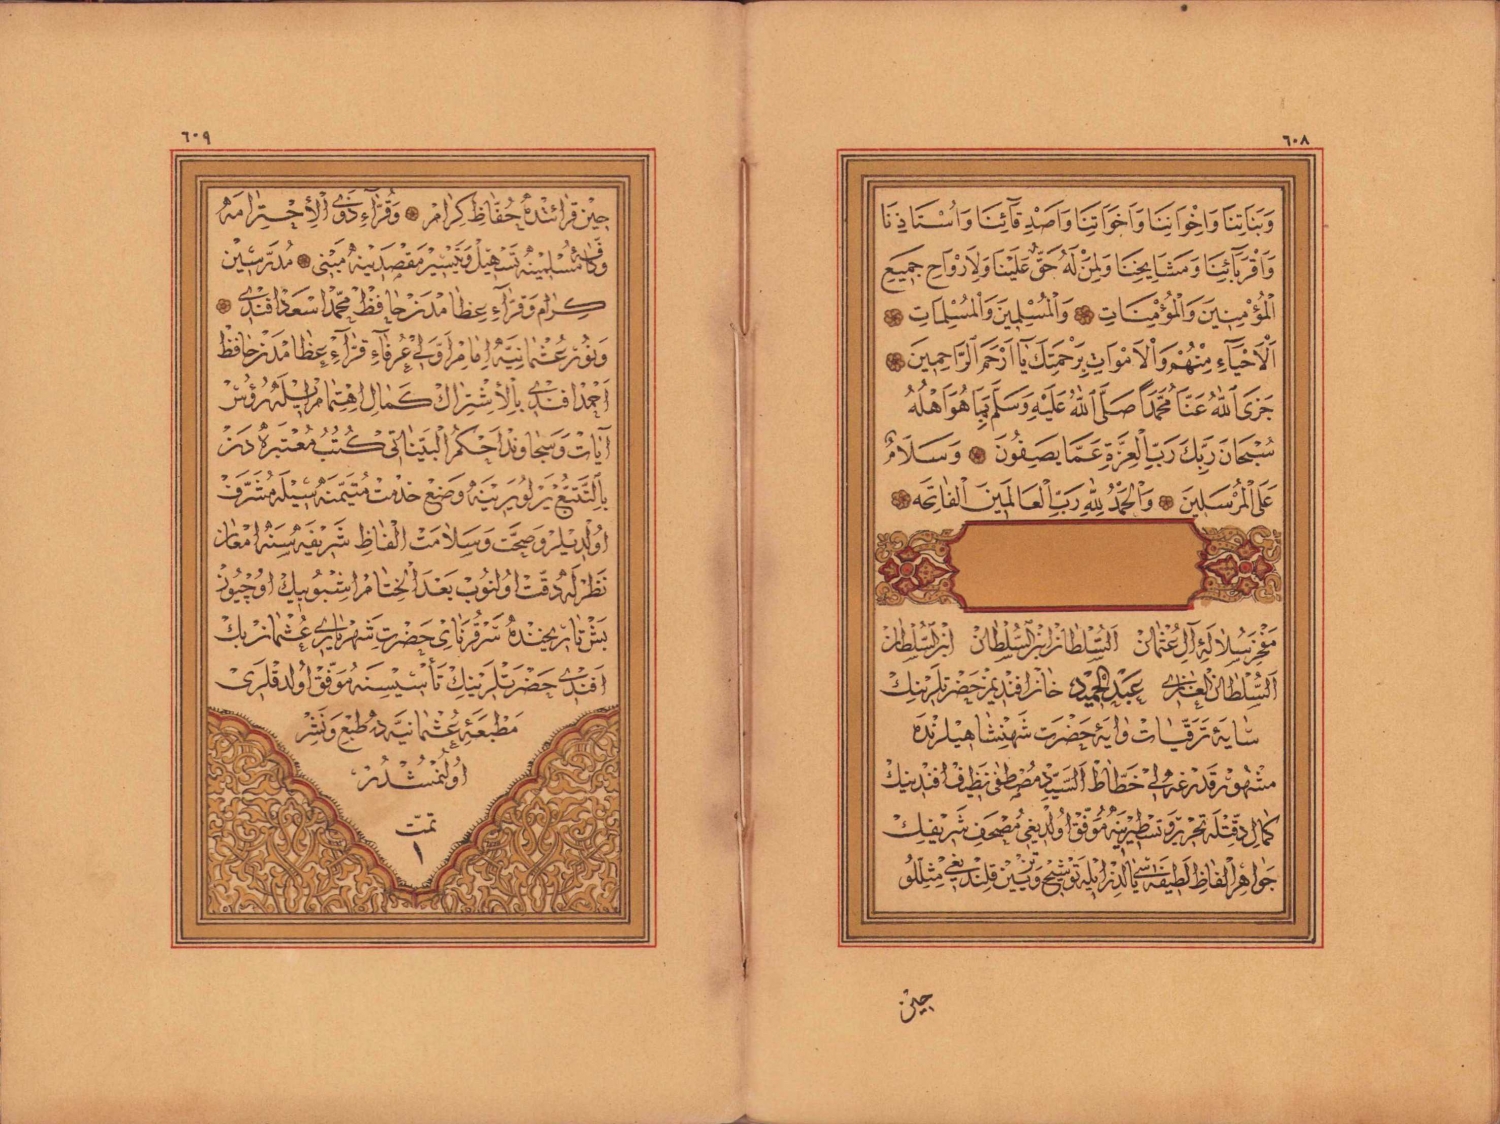 ٦٠٨
وَبَنَاتِنَا وَاِخْوَانِنَا وَاَخَوَاتِنَا وَاَصْدِقَآئِنَا وَاُسْتَاذِنَا
وَاَقْرِبَآئِنَا وَمَشَايِخِنَا وَلِمَنْ لَهُ حَقٌّ عَلَيْنَا وَلِاَرْوَاحِ جَمِيعِ
الْمُؤْمِنِينَ وَالْمُؤْمِنَاتِ وَالْمُسْلِمِينَ وَالْمُسْلِمَاتِ
اَلْاَحْيَآءِ مِنْهُمْ وَالْاَمْوَاتِ بِرَحْمَتِكَ يَا اَرْحَمَ الرَّاحِمِينَ
جَزَى اللّٰهُ عَنَّا مُحَمَّدًا صَلَّى اللّٰهُ عَلَيْهِ وَسَلَّمَ بِمَا هُوَ اَهْلُهُ
سُبْحَانَ رَبِّكَ رَبِّ الْعِزَّةِ عَمَّا يَصِفُونَ وَسَلَامٌ
عَلَى الْمُرْسَلِينَ وَالْحَمْدُ لِلّٰهِ رَبِّ الْعَالَمِينَ الْفَاتِحَه
مفخر سلالهٔ آل عثمان السلطان ابن السلطان ابن السلطان
السلطان الغازى عبد الحميد خان افنديمز حضرتلرينك
سايهٔ ترقيات وايهٔ حضرت شهنشاهيلرنده
مشهور قدرغه لى خطاط السيد مصطفى نظيف افندينك
كمال دقتله تحرير وتسطيرينه موفق اولديغى مصحف شريفك
جواهر الفاظ لطيفه سى بالذات ايله توشيح وتزيين قلنديغى مثللو
جين
٦٠٩
جين قرائنده حفاظ كرام وقراء ذوى الاحترامه
وكافهٔ مسلمينه تسهيل وتيسير مقصدينه مبنى مدرسين
كرام وقراء عظامدن حافظ محمد اسعد افندى
ونور عثمانيه امام اولى عرفاء قراء عظامدن حافظ
احمد افندى بالاشتراك كمال اهتمام ايله رؤس
آيات وسجاوندا حكم البيناتى كتب معتبره دن
بالتتبع يرلويرينه وضع خدمت متيمنه سيله مشرف
اولديلر وصحت وسلامت الفاظ شريفه سنه امعان
نظرله دقت اولنوب بعد الختام اشبو بيك اوچيوز
بش تاريخنده سرقرناى حضرت شهريارى عثمان بك
افندى حضرتلرينك تأسيسنه موفق اولدقلرى
مطبعهٔ عثمانيه ده طبع ونشر
اولنمشدر
تمت
١